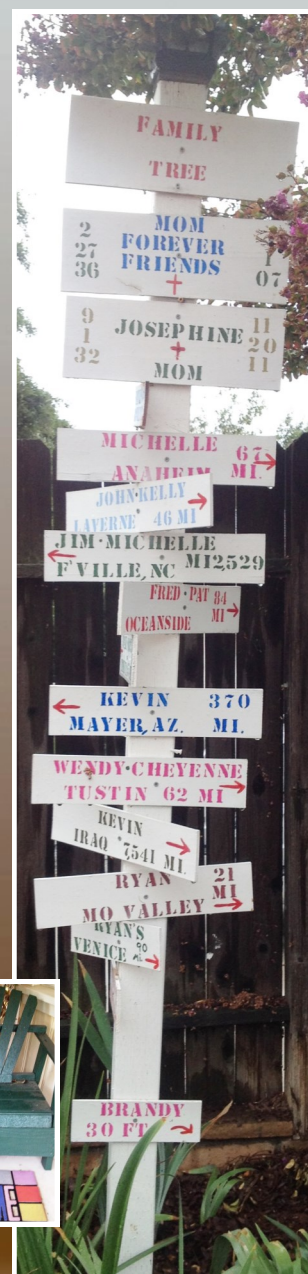 FAMILY
TREE
2 27 36
MOM
FOREVER
FRIENDS
+
1
07
9 1 32
JOSEPHINE
+
MOM
11 20 11
MICHELLE 67
ANAHEIM MI.
JOHN·KELLY
LAVERNE 46 MI
JIM·MICHELLE
F'VILLE, NC MI 2,529
FRED·PAT 84
OCEANSIDE MI
KEVIN 370
MAYER, AZ. MI.
WENDY·CHEYENNE
TUSTIN 62 MI
KEVIN
IRAQ 7,541 MI.
RYAN 21
MO VALLEY MI
RYAN'S
VENICE 90
BRANDY
30 FT